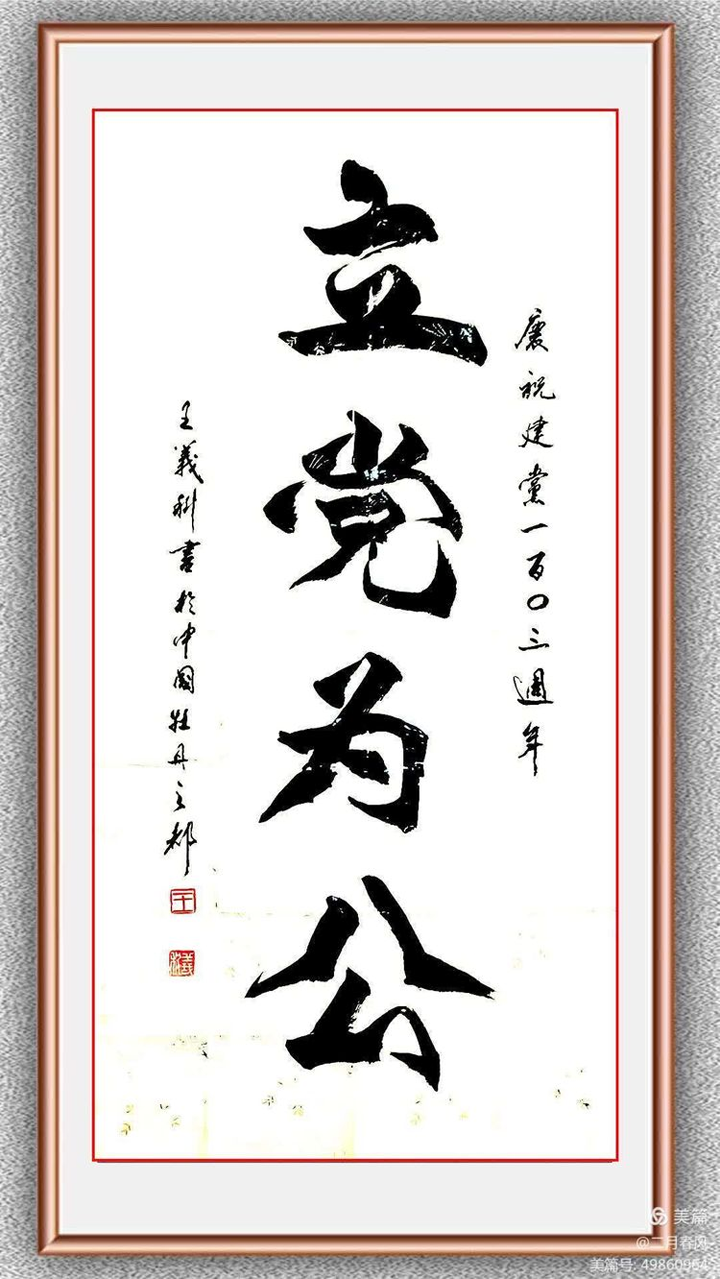 慶祝建黨一百〇三週年
立党为公
王義科書於中國牡丹之都
王
義科
美篇
@二月春风